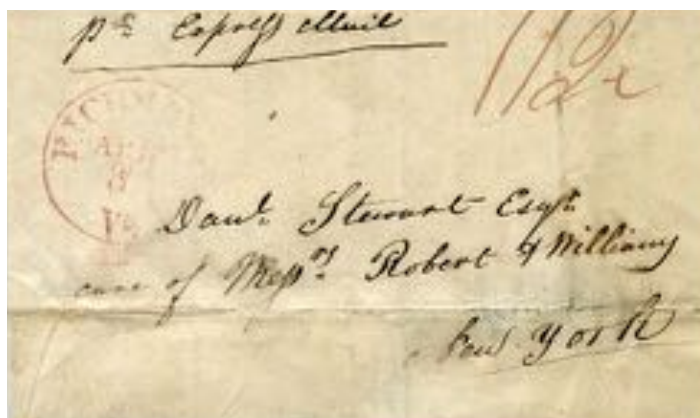 pr Express Mail
112½
RICHM
APR
8
Va
Danl. Stewart Esqr.
care of Messrs Robert & Williams
New York